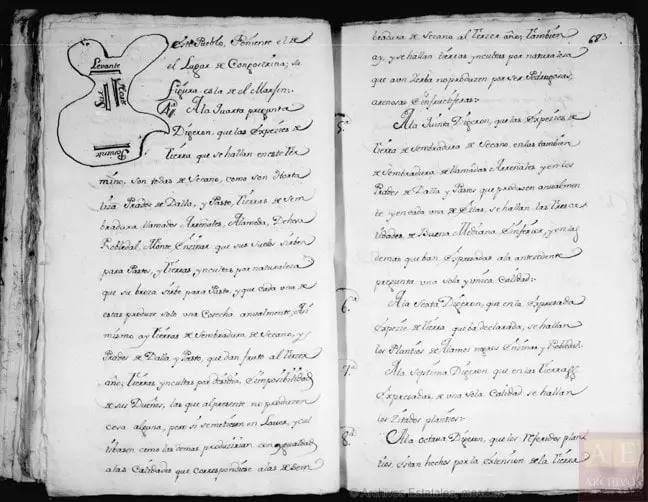 Levante
Norte
Sur
Poniente
este Pueblo, Poniente el de
el Lugar de Congostrina; su
figura es la de el Marjen:
4ª A la quarta pregunta
Digeron, que las Expezies de
tierra que se hallan en este ter
mino, son todas de Secano, como son Horta
liza Prados de Dalla, y Pasto, tierras de Sem
bradura llamados Arreñales, Alameda, Dehesa
Robledal, Monte Enzinar que sus suelos sirben
para Pastos, y tierras yncultas por naturaleza
que su broza sirbe para Pasto, y que cada una de
estas produze solo una Cosecha anualmente, Asi
mismo ay tierras de Sembradura de Secano, y
Prados de Dalla, y Pasto, que dan fruto al terzer
año; tierras yncultas por desidia, e imposibilidad
de sus Dueños, las que al presente no produzen
cosa alguna, pero si se metiesen en Lavor, y cul
tibasen como las demas produzirian con ygualdad
a las Calidades que correspondiese a las de Sem
683
bradura de Secano al terzer año; tambien
ay, y se hallan tierras yncultas por naturaleza
que aun Yerba no produzen por ser Pedregosas,
arenosas e infructiferas:
5ª A la quinta Digeron, que las Expezies de
tierra de Sembradura de Secano, en las tambien
de Sembradura llamadas Arreñales, y en los
Prados de Dalla, y Pastos que produzen anualmen
te, y en cada una de Ellas, se hallan las tres ca
lidades de Buena, Mediana e Inferior, y en las
demas que ban Expresadas a la antezedente
pregunta una sola y unica Calidad:
6ª A la Sexta Digeron, que en la Expresada
Expezie de tierra que ba declarada, se hallan
los Plantios de Alamos negros Enzinas y Robledal:
7ª A la Septima Digeron que en las tierras
Expresadas de una sola Calidad se hallan
los Zitados plantios:
8ª A la octava Digeron, que los Referidos plan
tios, estan hechos por la Extension de la tierra
© Archivos Estatales,
AE
ARCHIVOS